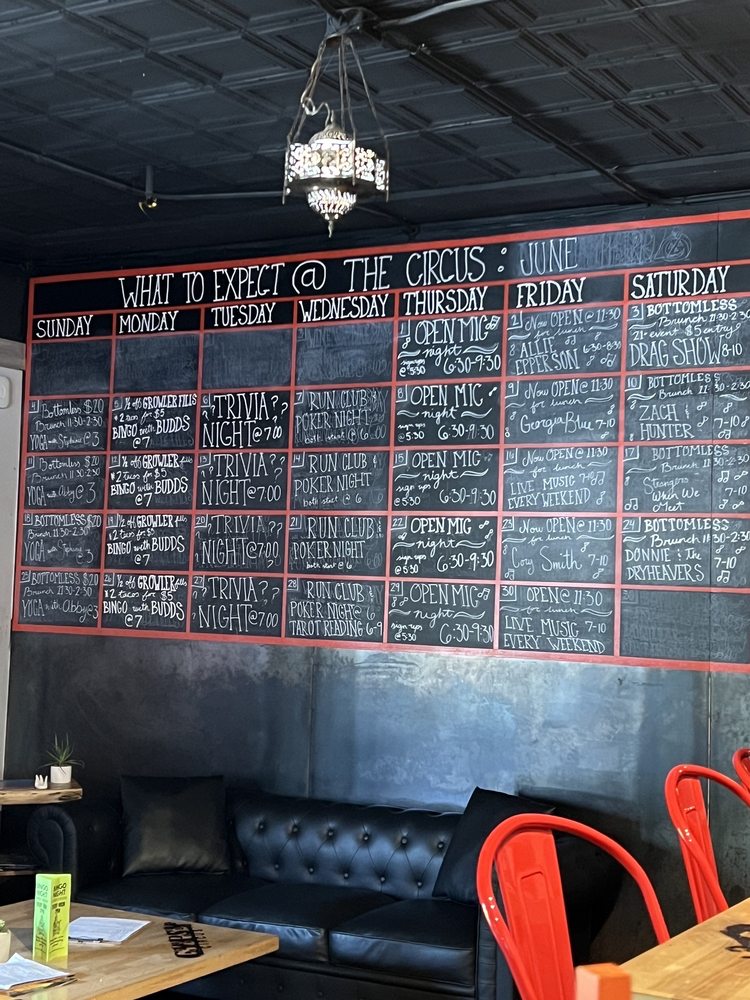 WHAT TO EXPECT @ THE CIRCUS : JUNE
SUNDAY
MONDAY
TUESDAY
WEDNESDAY
THURSDAY
FRIDAY
SATURDAY
1
OPEN MIC
night
sign ups
@ 5:30
6:30-9:30
2
Now OPEN @ 11:30
for lunch
ALLIE
EPPERSON
6:30-8:30
3 BOTTOMLESS
Brunch 11:30-2:30
21+ event $5 entry
DRAG SHOW 8-10
4 Bottomless $20
Brunch 11:30-2:30
YOGA with @ 3
5 ½ off GROWLER Fills
* 2 tacos for $5
BINGO with BUDDS
@ 7
6
TRIVIA??
NIGHT @ 7:00
7
RUN CLUB &
POKER NIGHT
both start @ 6:00
8
OPEN MIC
night
sign ups
@ 5:30
6:30-9:30
9 Now OPEN @ 11:30
for lunch
Georgia Blue 7-10
10 BOTTOMLESS
Brunch 11:30-2:30
ZACH &
HUNTER 7-10
11 Bottomless $20
Brunch 11:30-2:30
YOGA with Abby @ 3
12 ½ off GROWLER fills
* 2 tacos for $5
BINGO with BUDDS
@ 7
13
TRIVIA??
NIGHT @ 7:00
14
RUN CLUB &
POKER NIGHT
both start @ 6
15
OPEN MIC
night
sign ups
@ 5:30
6:30-9:30
16 Now OPEN @ 11:30
for lunch
LIVE MUSIC 7-10
EVERY WEEKEND
17 BOTTOMLESS
Brunch 11:30-2:30
Strangers
When We
Meet
7-10
18 BOTTOMLESS $20
Brunch 11:30-2:30
YOGA with @ 3
19 ½ off GROWLER fills
* 2 tacos for $5
BINGO with BUDDS
@ 7
20
TRIVIA??
NIGHT @ 7:00
21
RUN CLUB &
POKER NIGHT
both start @ 6
22
OPEN MIC
night
sign ups
@ 5:30
6:30-9:30
23 Now OPEN @ 11:30
for lunch
Cory Smith 7-10
24 BOTTOMLESS
Brunch 11:30-2:30
DONNIE & The
DRYHEAVERS 7-10
25 BOTTOMLESS $20
Brunch 11:30-2:30
YOGA with Abby @ 3
26 ½ off GROWLER fills
* 2 tacos for $5
BINGO with BUDDS
@ 7
27
TRIVIA??
NIGHT @ 7:00
28
RUN CLUB &
POKER NIGHT @ 6
TAROT READING 6-9
29
OPEN MIC
night
sign ups
@ 5:30
6:30-9:30
30 OPEN @ 11:30
for lunch
LIVE MUSIC 7-10
EVERY WEEKEND
BINGO
NIGHT